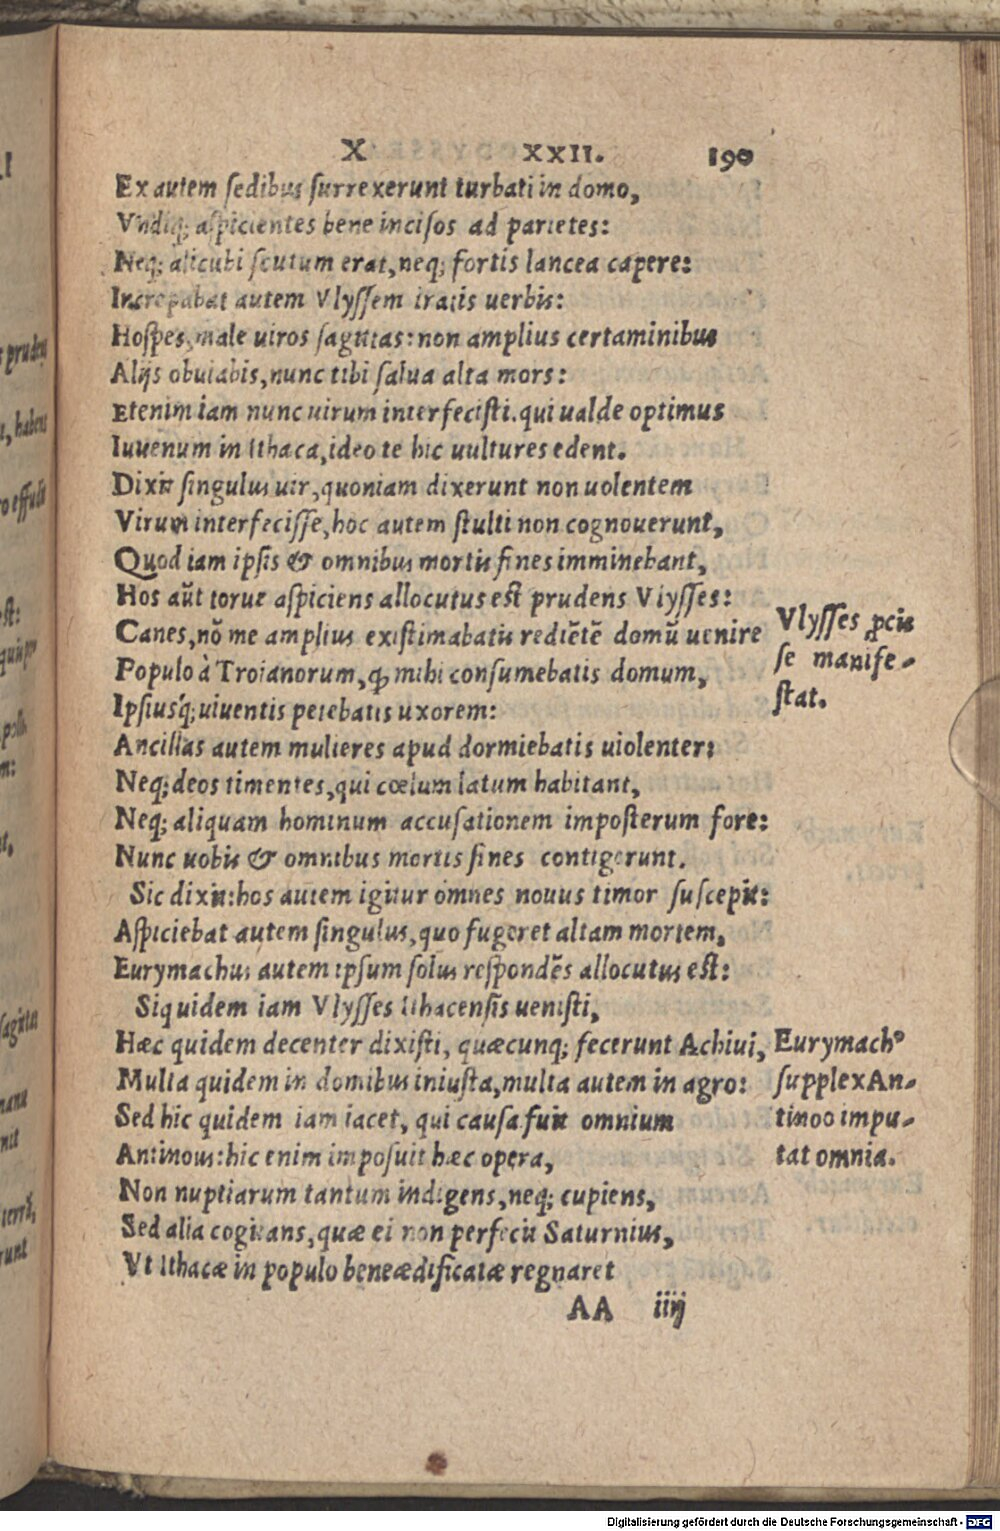 X XXII. 190
Ex autem sedibus surrexerunt turbati in domo,
Vndiq; aspicientes bene incisos ad parietes:
Neq; alicubi scutum erat, neq; fortis lancea capere:
Increpabat autem Vlyssem iratis uerbis:
Hospes, male uiros sagittas: non amplius certaminibus
Alijs obuiabis, nunc tibi salua alta mors:
Etenim iam nunc uirum interfecisti. qui ualde optimus
Iuuenum in Ithaca, ideo te hic uultures edent.
Dixit singulus uir, quoniam dixerunt non uolentem
Virum interfecisse, hoc autem stulti non cognouerunt,
Quod iam ipsis & omnibus mortis fines imminebant,
Hos aūt torue aspiciens allocutus est prudens Vlysses:
Canes, nō me amplius existimabatis rediētē domū uenire
Populo à Troianorum, ꝙ mihi consumebatis domum,
Ipsiusq́; uiuentis petebatis uxorem:
Ancillas autem mulieres apud dormiebatis uiolenter:
Neq; deos timentes, qui cœlum latum habitant,
Neq; aliquam hominum accusationem imposterum fore:
Nunc uobis & omnibus mortis fines contigerunt.
Sic dixit: hos autem igitur omnes nouus timor suscepit:
Aspiciebat autem singulus, quo fugeret altam mortem,
Eurymachus autem ipsum solus respondēs allocutus est:
Siquidem iam Vlysses Ithacensis uenisti,
Hæc quidem decenter dixisti, quæcunq; fecerunt Achiui,
Multa quidem in domibus iniusta, multa autem in agro:
Sed hic quidem iam iacet, qui causa fuit omnium
Antinous: hic enim imposuit hæc opera,
Non nuptiarum tantum indigens, neq; cupiens,
Sed alia cogitans, quæ ei non perfecit Saturnius,
Vt Ithacæ in populo bene ædificatæ regnaret
AA iiij
Vlysses ꝓcis
se manife-
stat.
Eurymachꝰ
supplex An-
tinoo impu-
tat omnia.
Digitalisierung gefördert durch die Deutsche Forschungsgemeinschaft - DFG